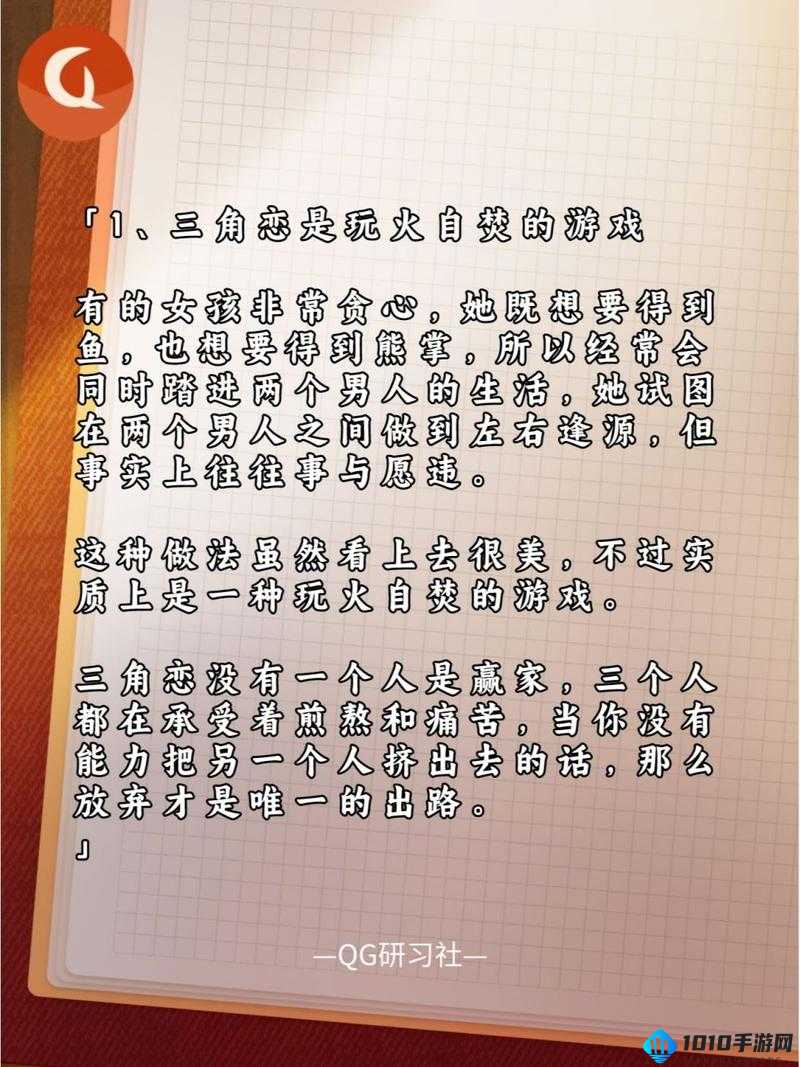 「1、三角恋是玩火自焚的游戏
有的女孩非常贪心，她既想要得到
鱼，也想要得到熊掌，所以经常会
同时踏进两个男人的生活，她试图
在两个男人之间做到左右逢源，但
事实上往往事与愿违。
这种做法虽然看上去很美，不过实
质上是一种玩火自焚的游戏。
三角恋没有一个人是赢家，三个人
都在承受着煎熬和痛苦，当你没有
能力把另一个人挤出去的话，那么
放弃才是唯一的出路。
」
—QG研习社—
1010手游网